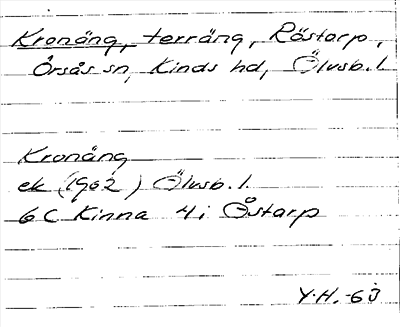 Kronäng, terräng, Röstarp,
Örsås sn, Kinds hd, Älvsb. l.
Kronäng
ek (1962) Älvsb. l.
6 C Kinna 4 i Östarp
Y.H. -63